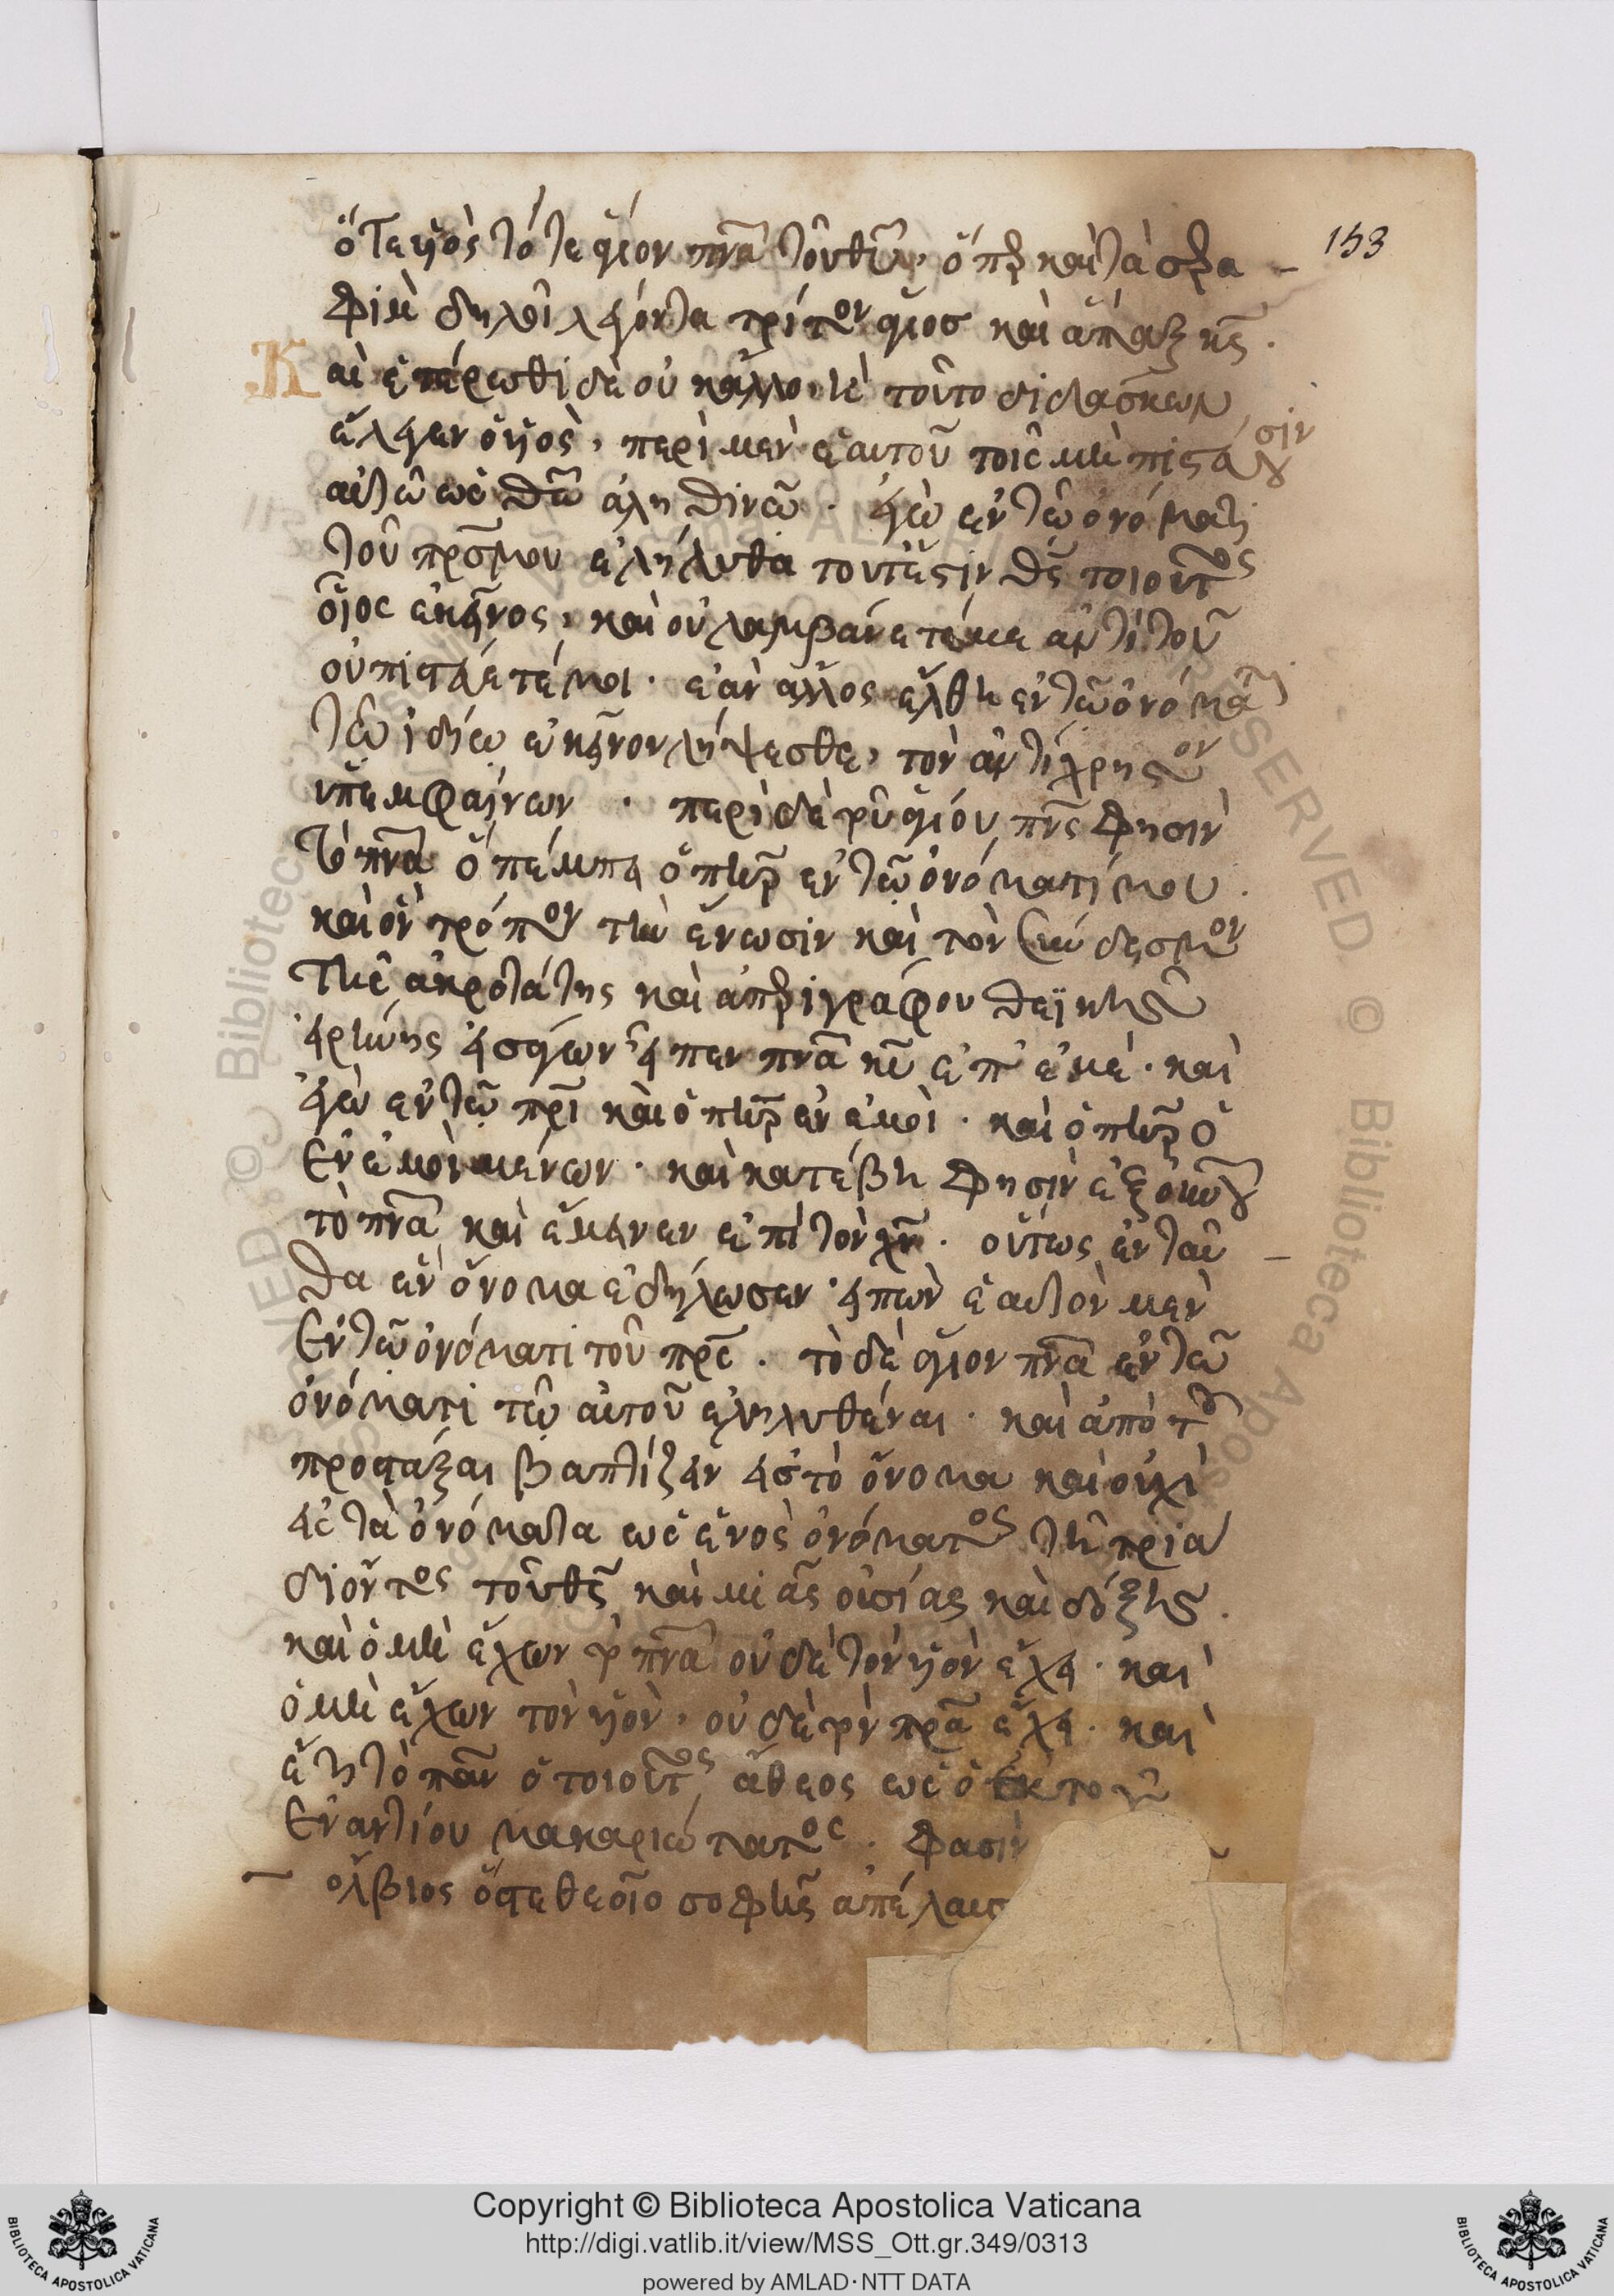 153
ὅτε υἱὸς τό τε ἅγιον πνα τοῦ θυ, ὅπερ καὶ τὰ σερα
φὶμ δηλοῖ λέγοντα τρίτον ἅγιος καὶ ἅπαξ κς.
Καὶ ἑτέρωθι δὲ οὐκ ἄλλό τι τοῦτο διδάσκων
ἔλεγεν ὁ υἱὸς, περὶ μὲν ἑαυτοῦ τοῖς μὴ πιστεύουσιν
αὐτῶ ὡς θω ἀληθινῶ. ἐγὼ ἐν τῶ ὀνόματι
τοῦ πρσ μου ἐλήλυθα τουτέστιν θς τοιοῦτος
οἷος ἐκεῖνος, καὶ οὐ λαμβάνετέ με ἀντὶ τοῦ
οὐ πιστεύετέ μοι. ἐὰν ἄλλος ἔλθη ἐν τῶ ὀνόματι
τῶ ἰδίω ἐκεῖνον λήψεσθε, τὸν ἀντίχρηστον
ὑπεμφαίνων. περὶ δὲ τοῦ ἁγίου πνς φησιν
τὸ πνα ὃ πέμπει ὁ πηρ ἐν τῶ ὀνόματί μου.
καὶ ὃν τρόπον τὴν ἕνωσιν καὶ τὸν σύνδεσμον
τῆς ἀκροτάτης καὶ ἀπεριγράφου θεϊκῆς
εἰρήνης εἰσάγων εἶπεν πνα κυ ἐπ' ἐμέ. καὶ
ἐγὼ ἐν τῶ πρι καὶ ὁ πηρ ἐν ἐμοὶ. καὶ ὁ πηρ ὁ
ἐν ἐμοὶ μένων. καὶ κατέβη φησὶν ἐξ οὐνου
τὸ πνα καὶ ἔμεινεν ἐπὶ τὸν χν. οὕτως ἐνταῦ
θα ἓν ὄνομα ἐδήλωσεν εἰπὼν ἑαυτὸν μὲν
ἐν τῶ ὀνόματι τοῦ πρς. τὸ δὲ ἅγιον πνα ἐν τῶ
ὀνόματι τῶ αὐτοῦ ἐληλυθέναι. καὶ ἀπὸ τοῦ
προστάξαι βαπτίζειν εἰς τὸ ὄνομα καὶ οὐχὶ
εἰς τὰ ὀνόματα ὡς ἑνὸς ὀνόματος τῆ τριά
δι ὄντος τοῦ θς καὶ μιᾶς οὐσίας καὶ δόξης.
καὶ ὁ μὴ ἔχων τὸ πνα οὐδὲ τὸν υἱὸν ἔχει. καὶ
ὁ μὴ ἔχων τὸν υἱὸν, οὐδὲ τὸν πρα ἔχει. καὶ
ἔτι τὸ πᾶν ὁ τοιοῦτος ἄθεος ὡς ὁ ἐκ τοῦ
ἐναντίου μακαριώτατος. φασὶν
ὄλβιος ὅστε θεοῖο σοφῆς ἀπέλαυσ
Copyright © Biblioteca Apostolica Vaticana
http://digi.vatlib.it/view/MSS_Ott.gr.349/0313
powered by AMLAD·NTT DATA